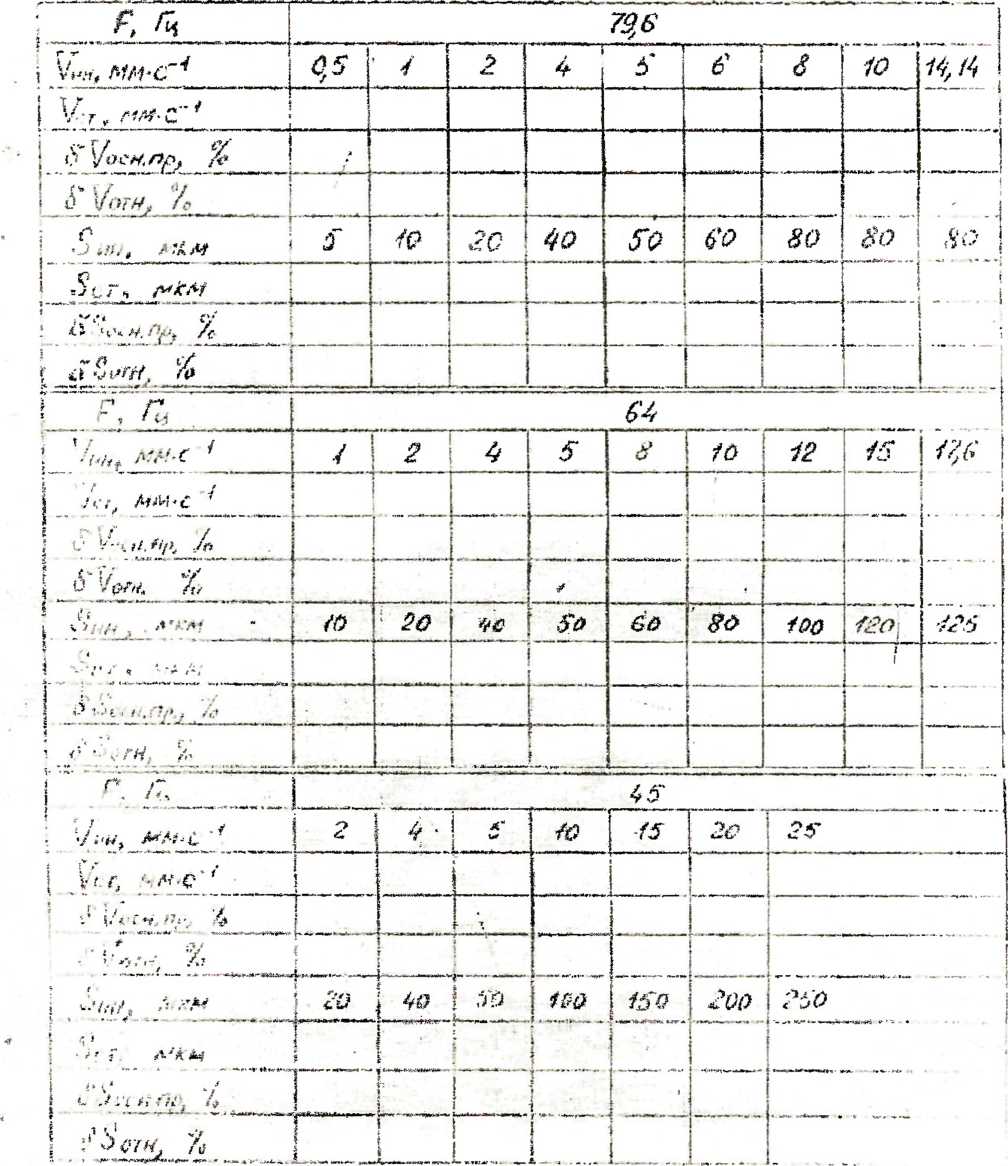 F, Гц 79,6
Vин, мм·с⁻¹ 0,5 1 2 4 5 6 8 10 14,14
Vст, мм·с⁻¹
δVосн.пр, %
δVотн, %
Sин, мкм 5 10 20 40 50 60 80 80 80
Sст, мкм
δSосн.пр, %
δSотн, %
F, Гц 64
Vин, мм·с⁻¹ 1 2 4 5 8 10 12 15 17,6
Vст, мм·с⁻¹
δVосн.пр, %
δVотн, %
Sин, мкм 10 20 40 50 60 80 100 120 125
Sст, мкм
δSосн.пр, %
δSотн, %
F, Гц 45
Vин, мм·с⁻¹ 2 4 5 10 15 20 25
Vст, мм·с⁻¹
δVосн.пр, %
δVотн, %
Sин, мкм 20 40 50 100 150 200 250
Sст, мкм
δSосн.пр, %
δSотн, %